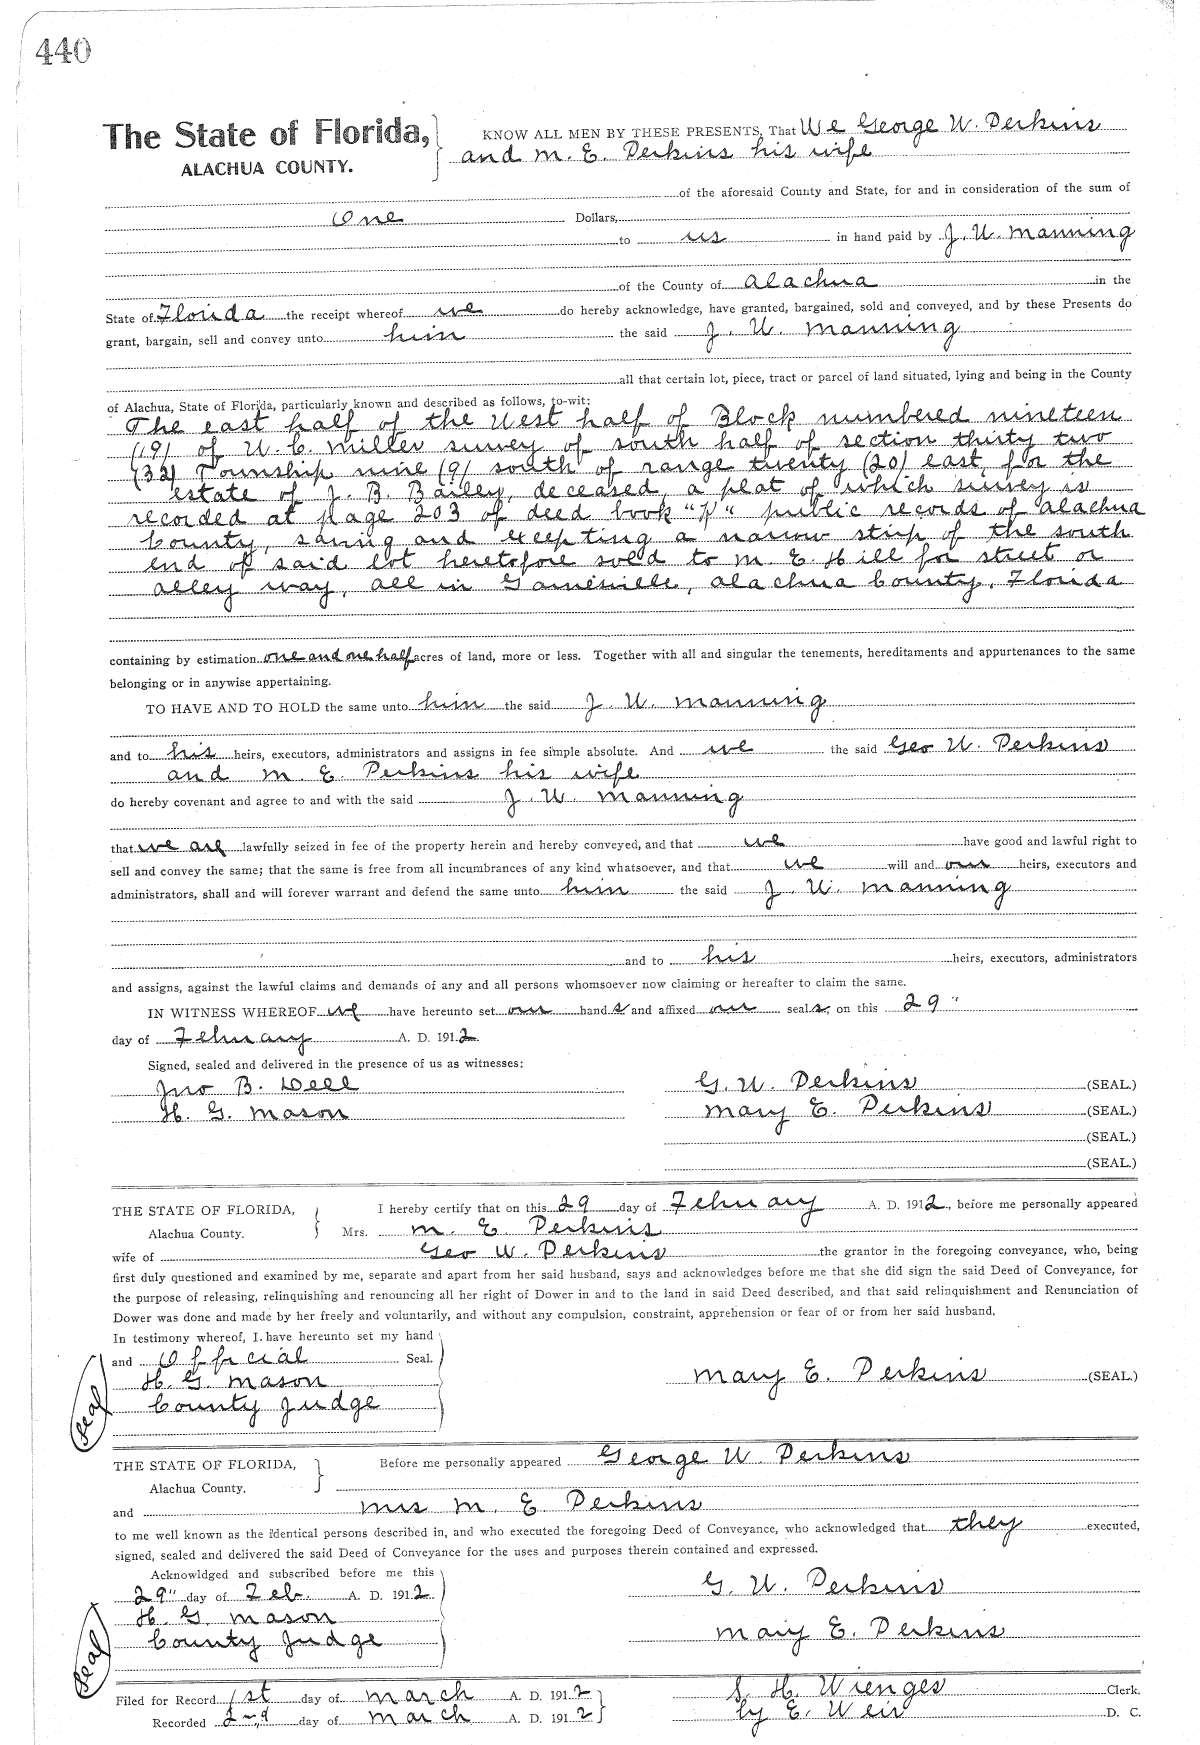 440
The State of Florida, KNOW ALL MEN BY THESE PRESENTS, That We George W. Perkins
ALACHUA COUNTY. and M. E. Perkins his wife
of the aforesaid County and State, for and in consideration of the sum of
One Dollars,
to us in hand paid by J. W. Manning
of the County of Alachua in the
State of Florida the receipt whereof we do hereby acknowledge, have granted, bargained, sold and conveyed, and by these Presents do
grant, bargain, sell and convey unto him the said J. W. Manning
all that certain lot, piece, tract or parcel of land situated, lying and being in the County
of Alachua, State of Florida, particularly known and described as follows, to-wit:
The east half of the West half of Block numbered nineteen
(19) of W. C. Miller survey of south half of section thirty two
(32) Township nine (9) south of range twenty (20) east, for the
estate of J. B. Bailey, deceased, a plat of which survey is
recorded at page 203 of deed book " " public records of Alachua
County, saving and excepting a narrow strip of the south
end of said lot heretofore sold to M. E. Hill for street or
alley way, all in Gainesville, Alachua County, Florida
containing by estimation one and one half acres of land, more or less. Together with all and singular the tenements, hereditaments and appurtenances to the same
belonging or in anywise appertaining.
TO HAVE AND TO HOLD the same unto him the said J. W. Manning
and to his heirs, executors, administrators and assigns in fee simple absolute. And we the said Geo W. Perkins
and M. E. Perkins his wife
do hereby covenant and agree to and with the said J. W. Manning
that we are lawfully seized in fee of the property herein and hereby conveyed, and that we have good and lawful right to
sell and convey the same; that the same is free from all incumbrances of any kind whatsoever, and that we will and our heirs, executors and
administrators, shall and will forever warrant and defend the same unto him the said J. W. Manning
and to his heirs, executors, administrators
and assigns, against the lawful claims and demands of any and all persons whomsoever now claiming or hereafter to claim the same.
IN WITNESS WHEREOF we have hereunto set our hand s and affixed our seal s, on this 29"
day of February A. D. 1912.
Signed, sealed and delivered in the presence of us as witnesses:
Jno B. Dell G. W. Perkins (SEAL.)
H. G. Mason Mary E. Perkins (SEAL.)
(SEAL.)
(SEAL.)
THE STATE OF FLORIDA, I hereby certify that on this 29 day of February A. D. 1912, before me personally appeared
Alachua County. Mrs. M. E. Perkins
wife of Geo W. Perkins the grantor in the foregoing conveyance, who, being
first duly questioned and examined by me, separate and apart from her said husband, says and acknowledges before me that she did sign the said Deed of Conveyance, for
the purpose of releasing, relinquishing and renouncing all her right of Dower in and to the land in said Deed described, and that said relinquishment and Renunciation of
Dower was done and made by her freely and voluntarily, and without any compulsion, constraint, apprehension or fear of or from her said husband.
In testimony whereof, I have hereunto set my hand
and Official Seal.
H. G. Mason Mary E. Perkins (SEAL.)
County Judge
Seal
THE STATE OF FLORIDA, Before me personally appeared George W. Perkins
Alachua County.
and Mrs M. E Perkins
to me well known as the identical persons described in, and who executed the foregoing Deed of Conveyance, who acknowledged that they executed,
signed, sealed and delivered the said Deed of Conveyance for the uses and purposes therein contained and expressed.
Acknowldged and subscribed before me this
29" day of Feb. A. D. 1912 G. W. Perkins
H. G. Mason
County Judge Mary E. Perkins
Seal
Filed for Record 1st day of March A. D. 1912 S. H. Wienges Clerk.
Recorded 2nd day of March A. D. 1912 by E. Weir D. C.